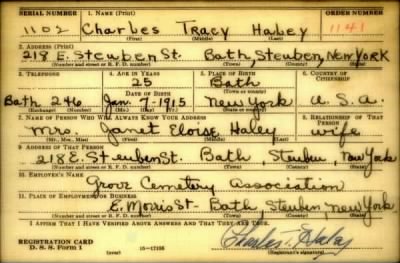 SERIAL NUMBER 1. NAME (Print) ORDER NUMBER
1102 Charles Tracy Haley 1141
(First) (Middle) (Last)
2. ADDRESS (Print)
218 E. Steuben St. Bath, Steuben, New York
(Number and street or R. F. D. number) (Town) (County) (State)
3. TELEPHONE 4. AGE IN YEARS 5. PLACE OF BIRTH 6. COUNTRY OF CITIZENSHIP
25 Bath
DATE OF BIRTH (Town or county)
Bath 246 Jan. 7-1915 New York U. S. A.
(Exchange) (Number) (Mo.) (Day) (Yr.) (State or country)
7. NAME OF PERSON WHO WILL ALWAYS KNOW YOUR ADDRESS 8. RELATIONSHIP OF THAT PERSON
Mrs. Janet Eloise Haley wife
(Mr., Mrs., Miss) (First) (Middle) (Last)
9. ADDRESS OF THAT PERSON
218 E. Steuben St. Bath Steuben, New York
(Number and street or R. F. D. number) (Town) (County) (State)
10. EMPLOYER'S NAME
Grove Cemetery Association
11. PLACE OF EMPLOYMENT OR BUSINESS
E. Morris St- Bath, Steuben, New York.
(Number and street or R. F. D. number) (Town) (County) (State)
I AFFIRM THAT I HAVE VERIFIED ABOVE ANSWERS AND THAT THEY ARE TRUE.
REGISTRATION CARD
D. S. S. Form 1 (over) 16-17105 Charles T. Haley
(Registrant's signature)